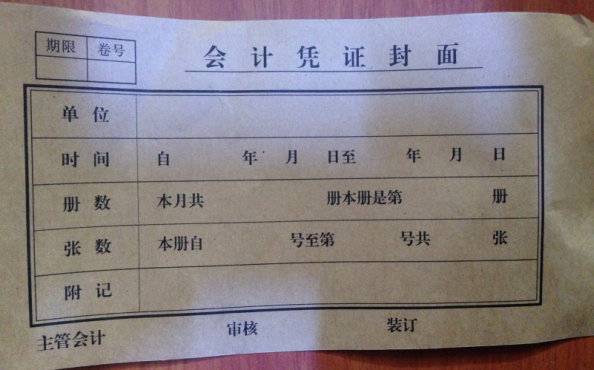 期限 卷号
会计凭证封面
单位
时间 自 年 月 日至 年 月 日
册数 本月共 册本册是第 册
张数 本册自 号至第 号共 张
附记
主管会计 审核 装订